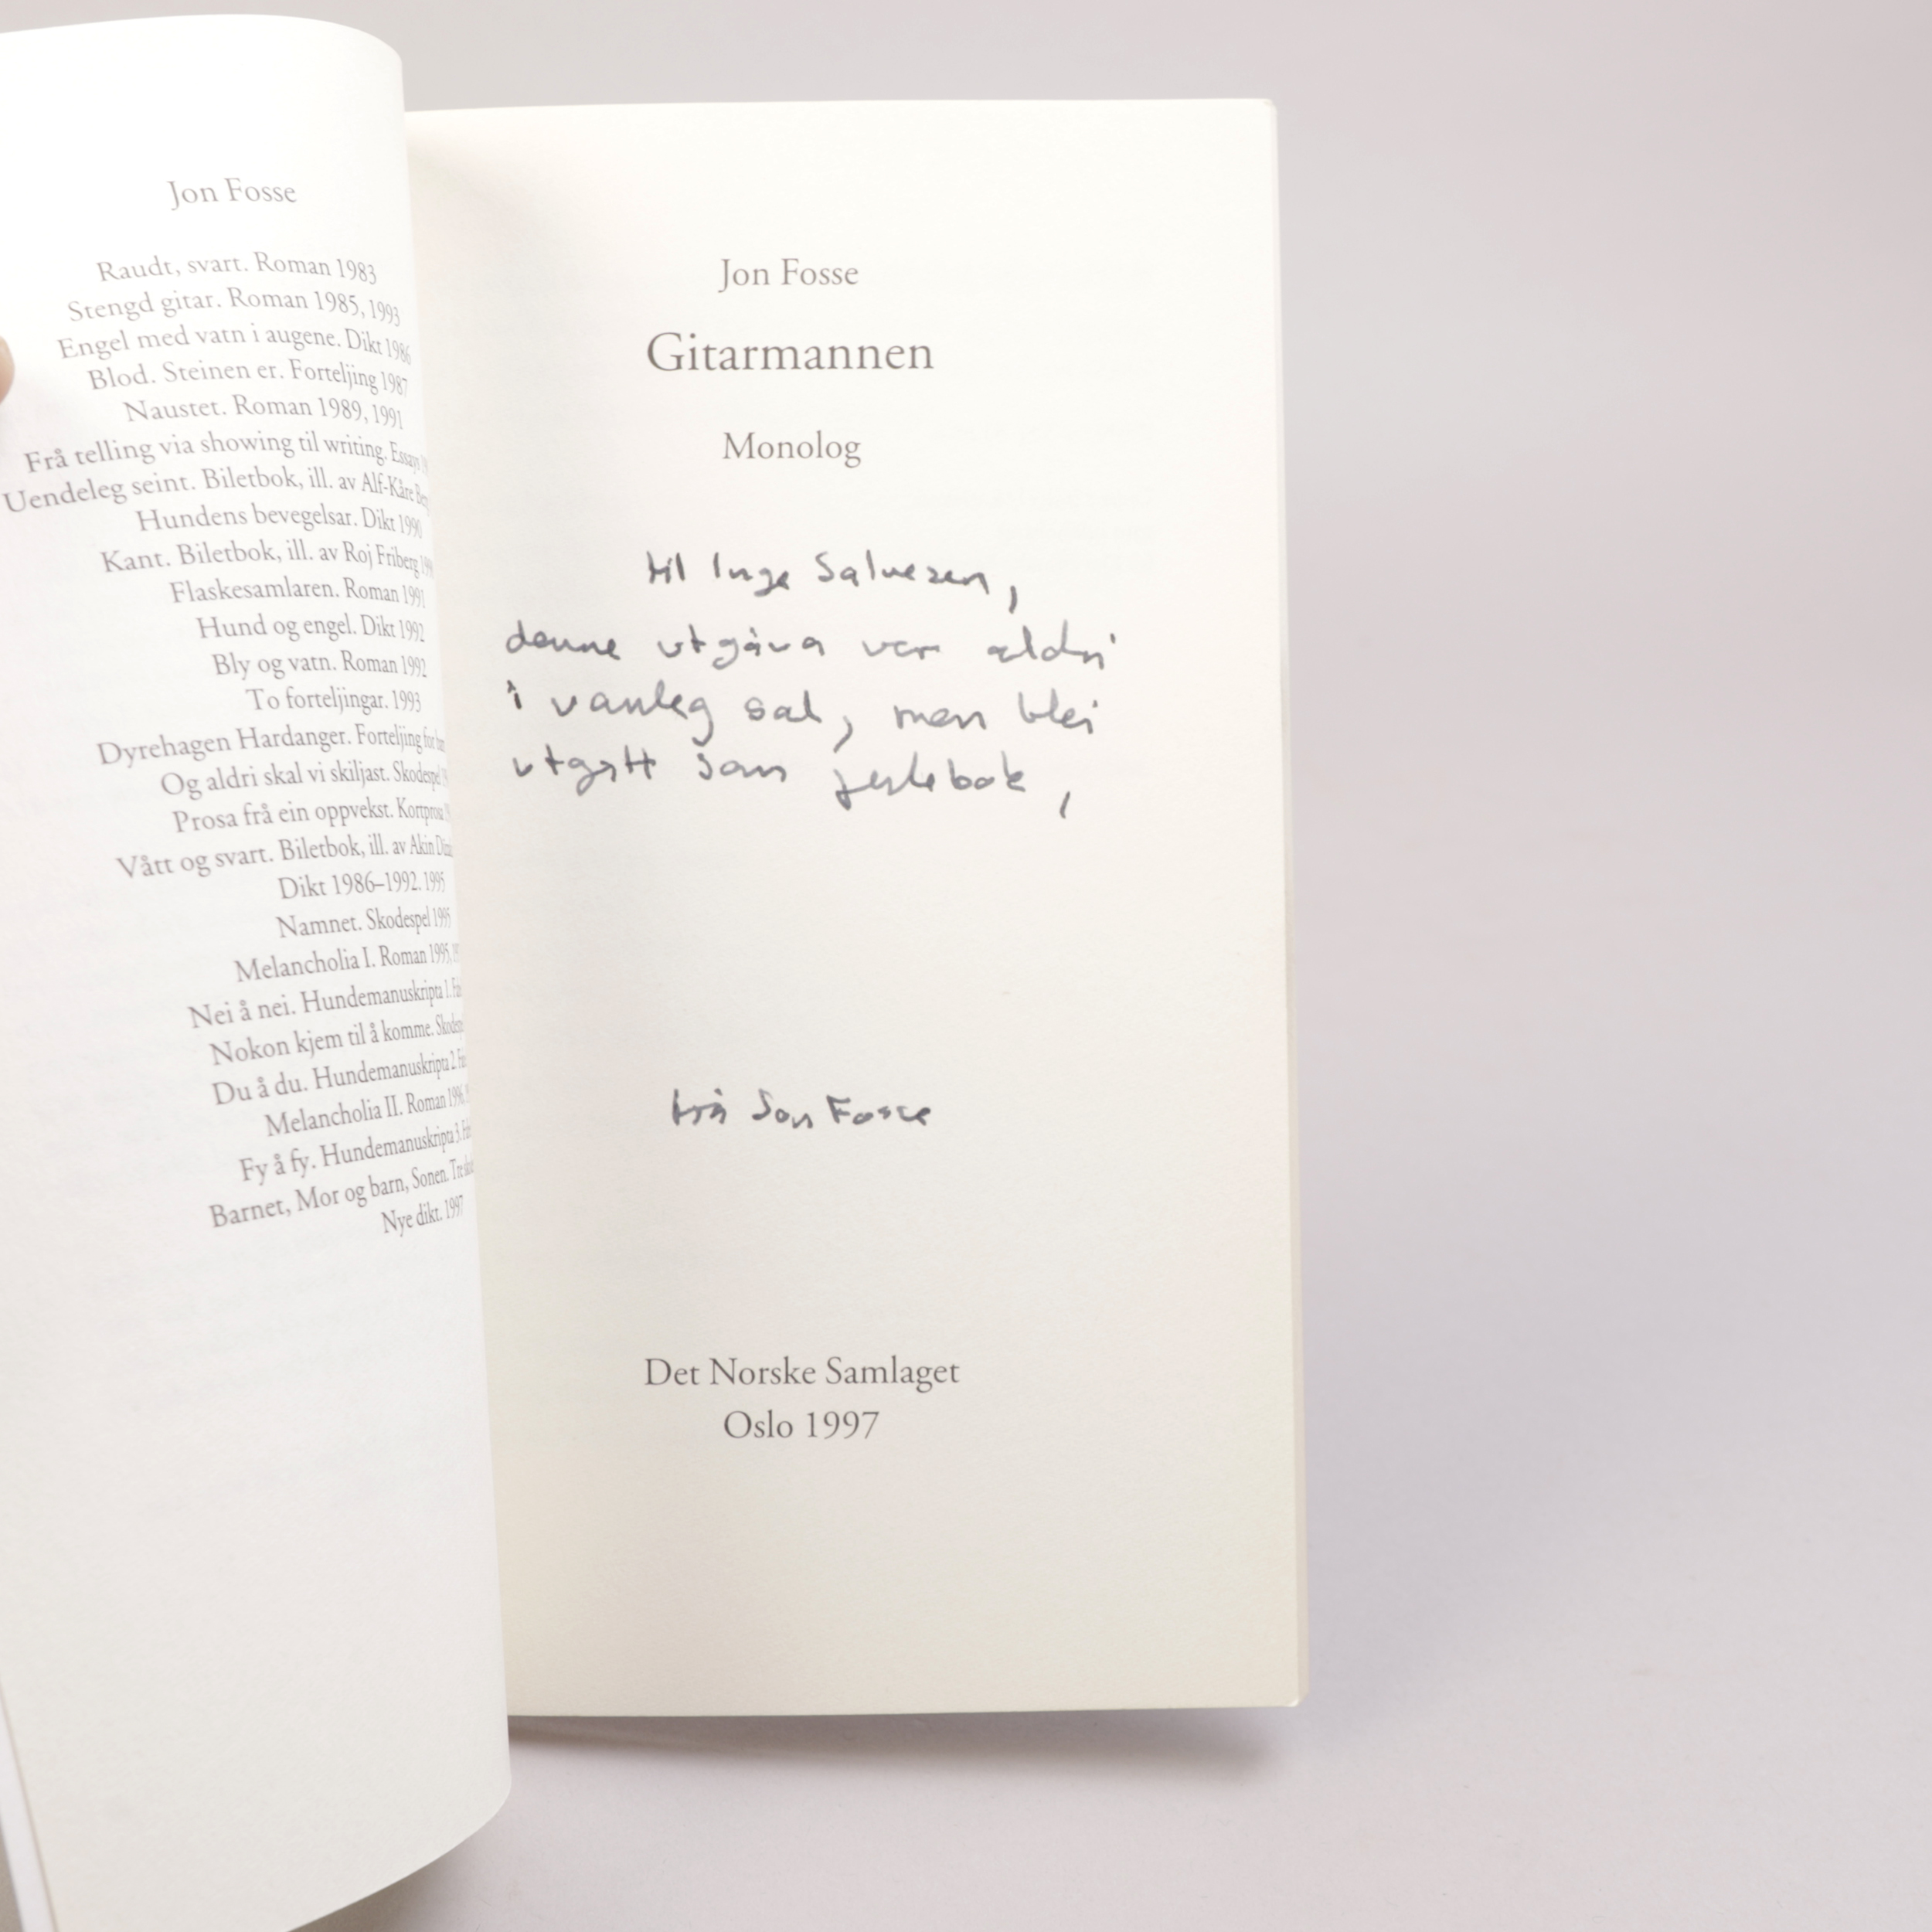 Jon Fosse
Raudt, svart. Roman 1983
Stengd gitar. Roman 1985, 1993
Engel med vatn i augene. Dikt 1986
Blod. Steinen er. Forteljing 1987
Naustet. Roman 1989, 1991
Frå telling via showing til writing. Essays
Uendeleg seint. Biletbok, ill. av Alf-Kåre
Hundens bevegelsar. Dikt 1990
Kant. Biletbok, ill. av Roj Friberg
Flaskesamlaren. Roman 1991
Hund og engel. Dikt 1992
Bly og vatn. Roman 1992
To forteljingar. 1993
Dyrehagen Hardanger. Forteljing for
Og aldri skal vi skiljast. Skodespel
Prosa frå ein oppvekst. Kortprosa
Vått og svart. Biletbok, ill. av Akin
Dikt 1986–1992. 1995
Namnet. Skodespel 1995
Melancholia I. Roman 1995,
Nei å nei. Hundemanuskripta 1.
Nokon kjem til å komme.
Du å du. Hundemanuskripta 2.
Melancholia II. Roman 1996.
Fy å fy. Hundemanuskripta 3.
Barnet, Mor og barn, Sonen. Tre
Nye dikt. 1997
Jon Fosse
Gitarmannen
Monolog
til Inge Salvesen,
denne utgåva var aldri
i vanleg sal, men blei
utgitt som festebok,
frå Jon Fosse
Det Norske Samlaget
Oslo 1997